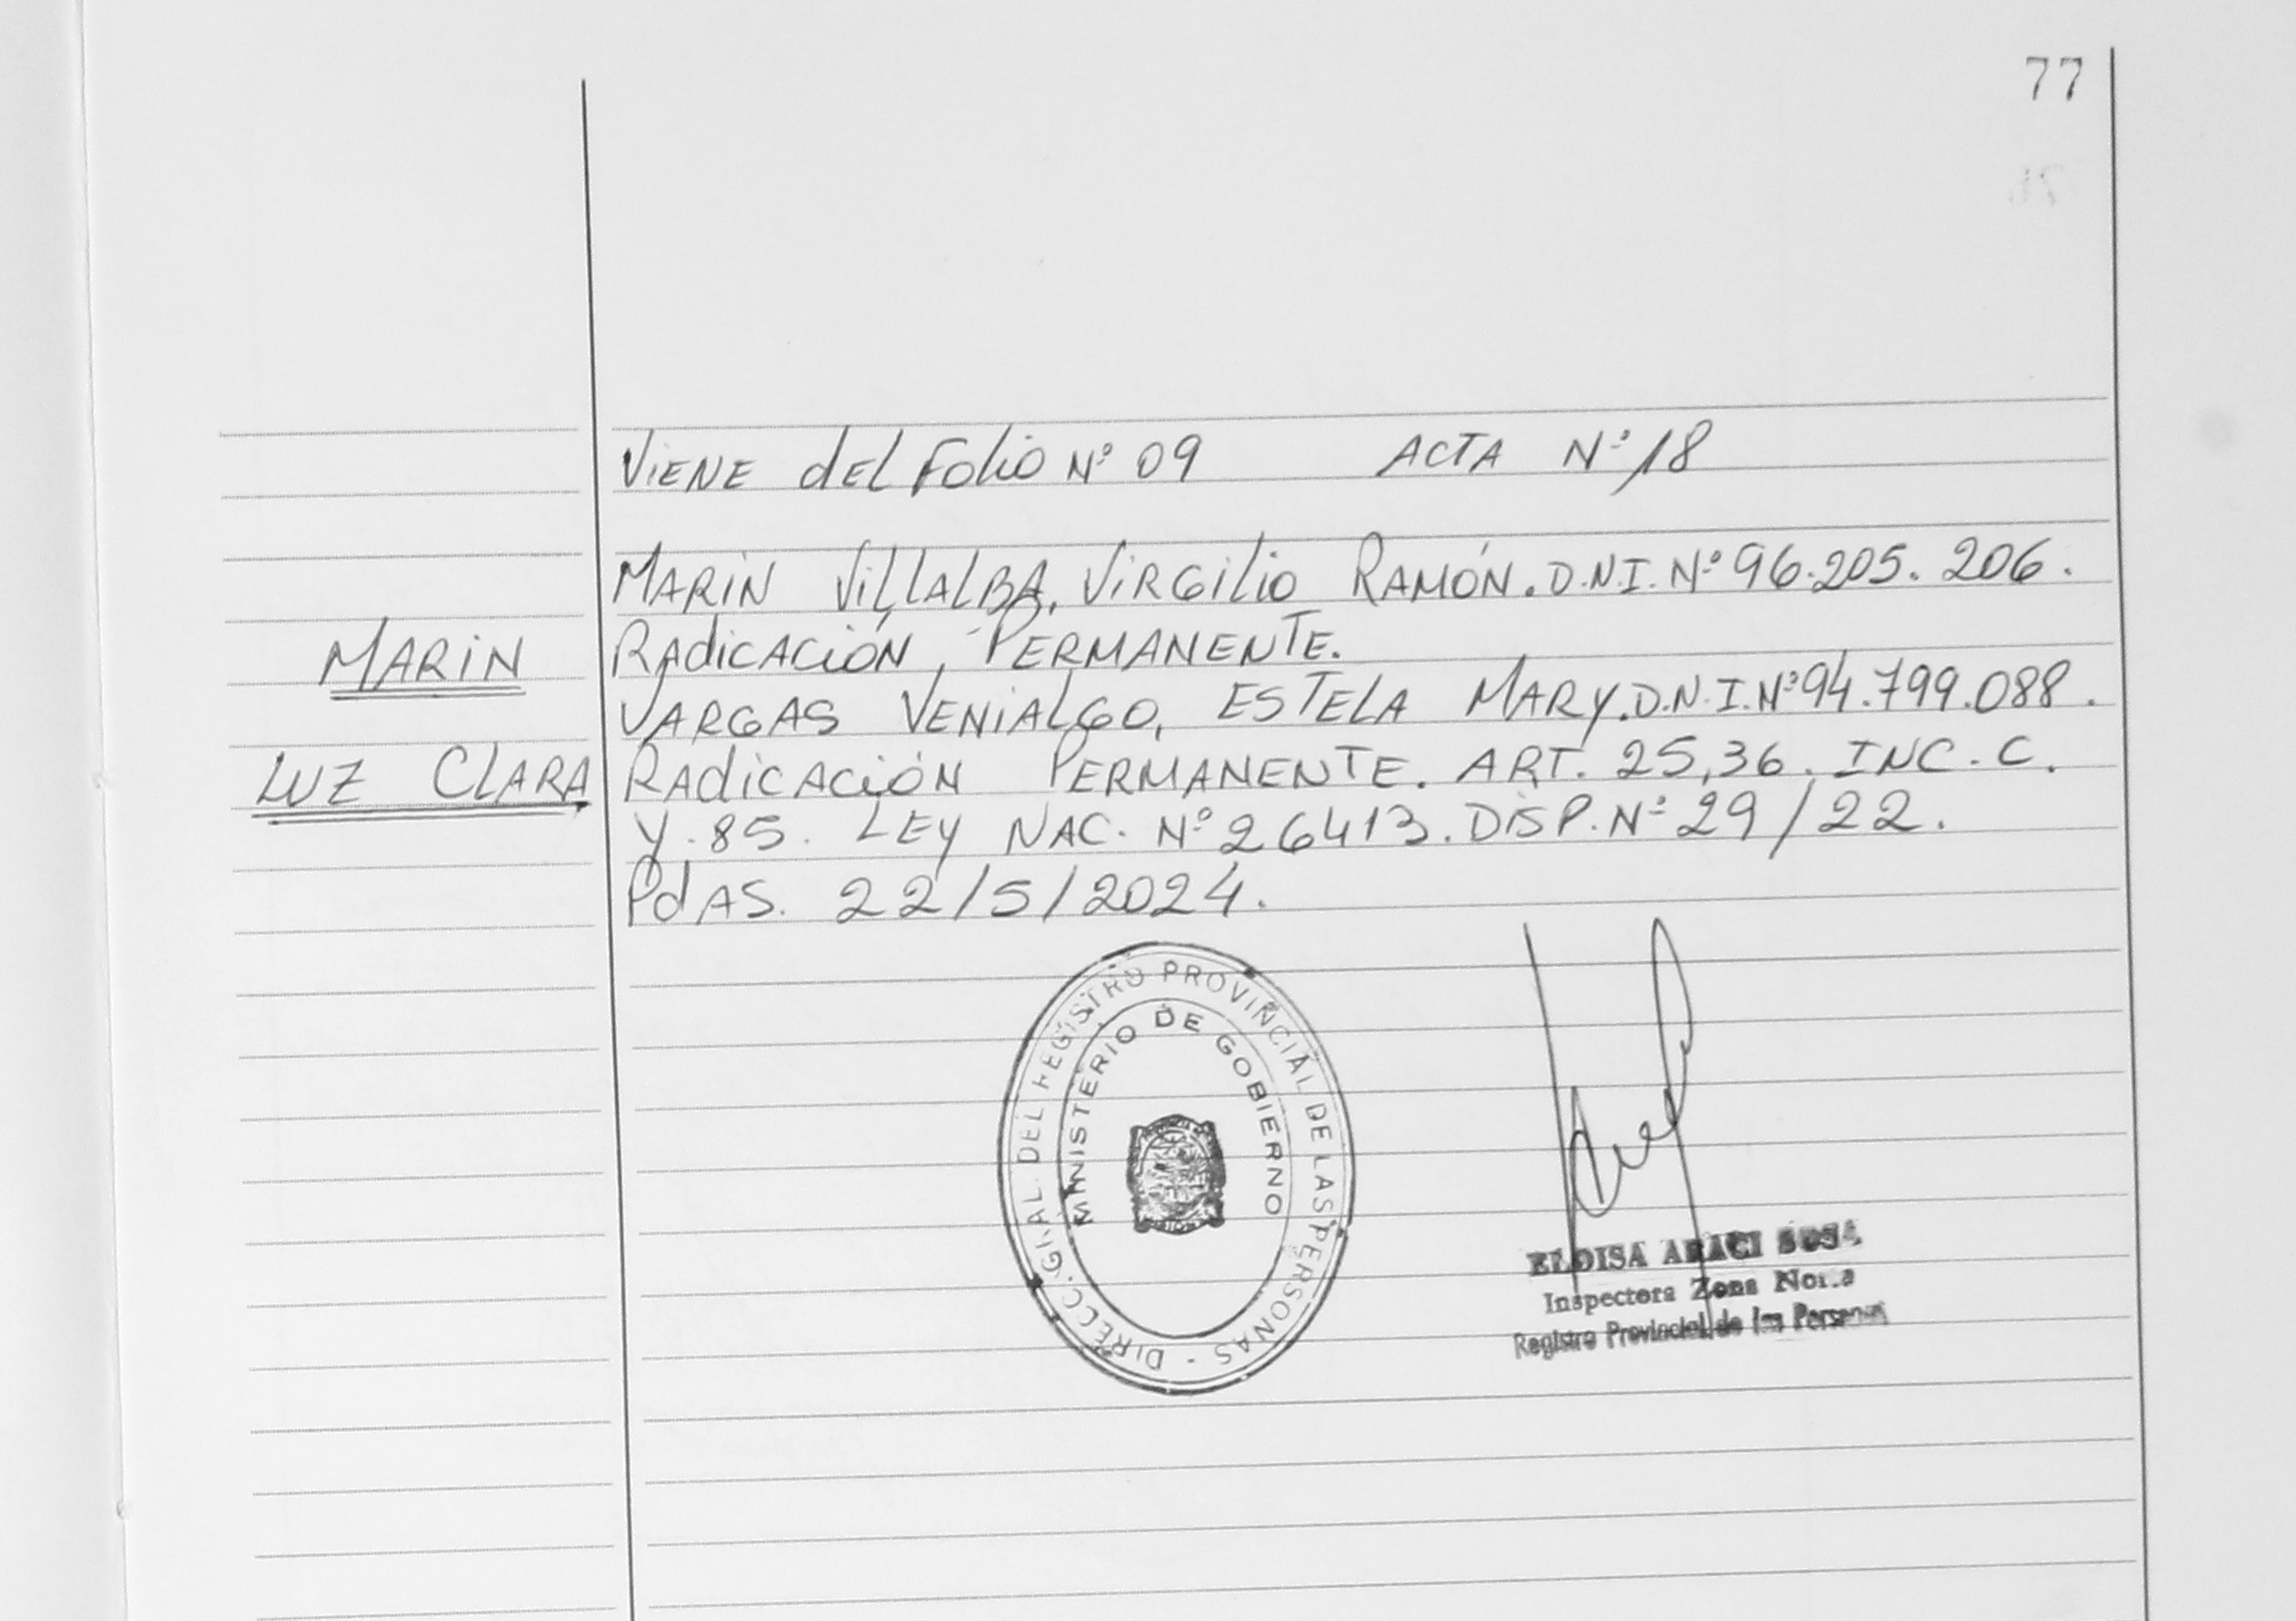 77
VIENE dEL FOLIO Nº 09 ACTA Nº 18
MARIN VILLALBA, VIRGILIO RAMÓN. D.N.I. Nº 96.205.206.
MARIN
RADICACIÓN, PERMANENTE.
VARGAS VENIALGO, ESTELA MARY. D.N.I. Nº 94.799.088.
LUZ CLARA
RADICACIÓN PERMANENTE. ART. 25,36. INC. C.
Y. 85. LEY NAC. Nº 26413. DISP. Nº 29/22.
PdAS. 22/5/2024.
DIRECC. GRAL DEL REGISTRO PROVINCIAL DE LAS PERSONAS -
MINISTERIO DE GOBIERNO
ELOISA ARACI SOSA
Inspectora Zona
Registro Provincial de las Personas